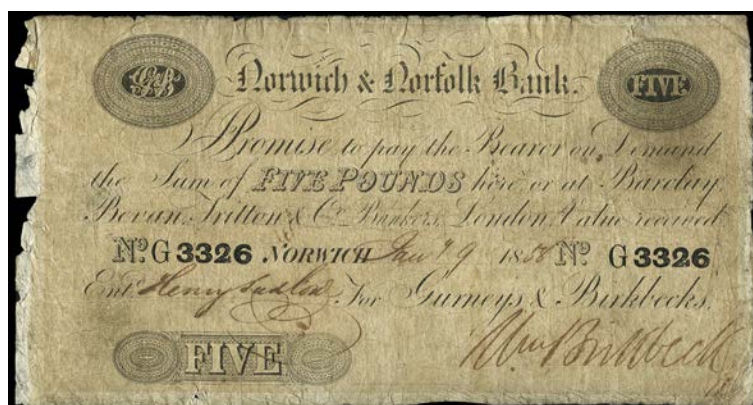 GB Norwich & Norfolk Bank. FIVE
I Promise to pay the Bearer on Demand
the Sum of FIVE POUNDS here or at Barclay,
Bevan, Tritton & Co. Bankers, London, Value received
No. G 3326 NORWICH Jany 9 18 No. G 3326
Entd. Henry For Gurneys & Birkbecks.
FIVE Wm Birkbeck